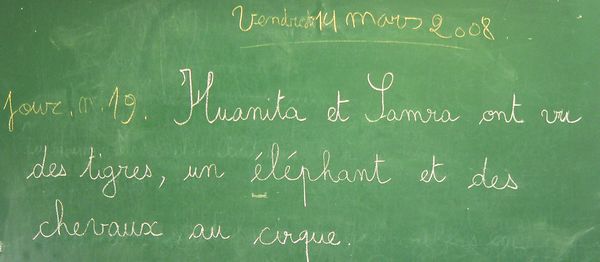 Vendredi 14 mars 2008.
Jour. n°. 19. Huanita et Samra ont vu
des tigres, un éléphant et des
chevaux au cirque.